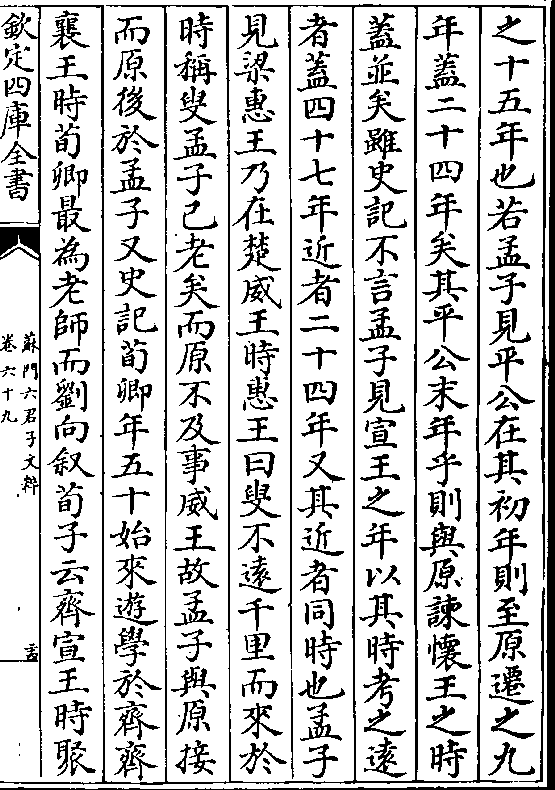 之十五年也若孟子見平公在其初年則至原遷之九
年蓋二十四年矣其平公末年乎則與原諫懷王之時
蓋並矣雖史記不言孟子見宣王之年以其時考之遠
者蓋四十七年近者二十四年又其近者同時也孟子
見梁惠王乃在楚威王時惠王曰叟不遠千里而來於
時稱叟孟子已老矣而原不及事威王故孟子與原接
而原後於孟子又史記荀卿年五十始來遊學於齊齊
襄王時荀卿最為老師而劉向叙荀子云齊宣王時聚
欽定四庫全書
蘇門六君子文粹
卷六十九